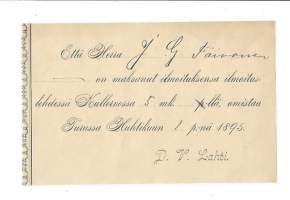 Että Herra J G Toivonen
on maksanut ilmoituksensa ilmoitus-
lehdessä Kullervossa 5 mk. llä, omistaa
Turussa Huhtikuun 1 p:nä 1895.
D. V. Lahti.